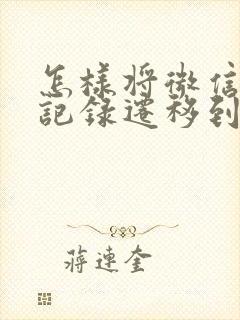 怎樣將微信
記錄遷移到
蔣連奎